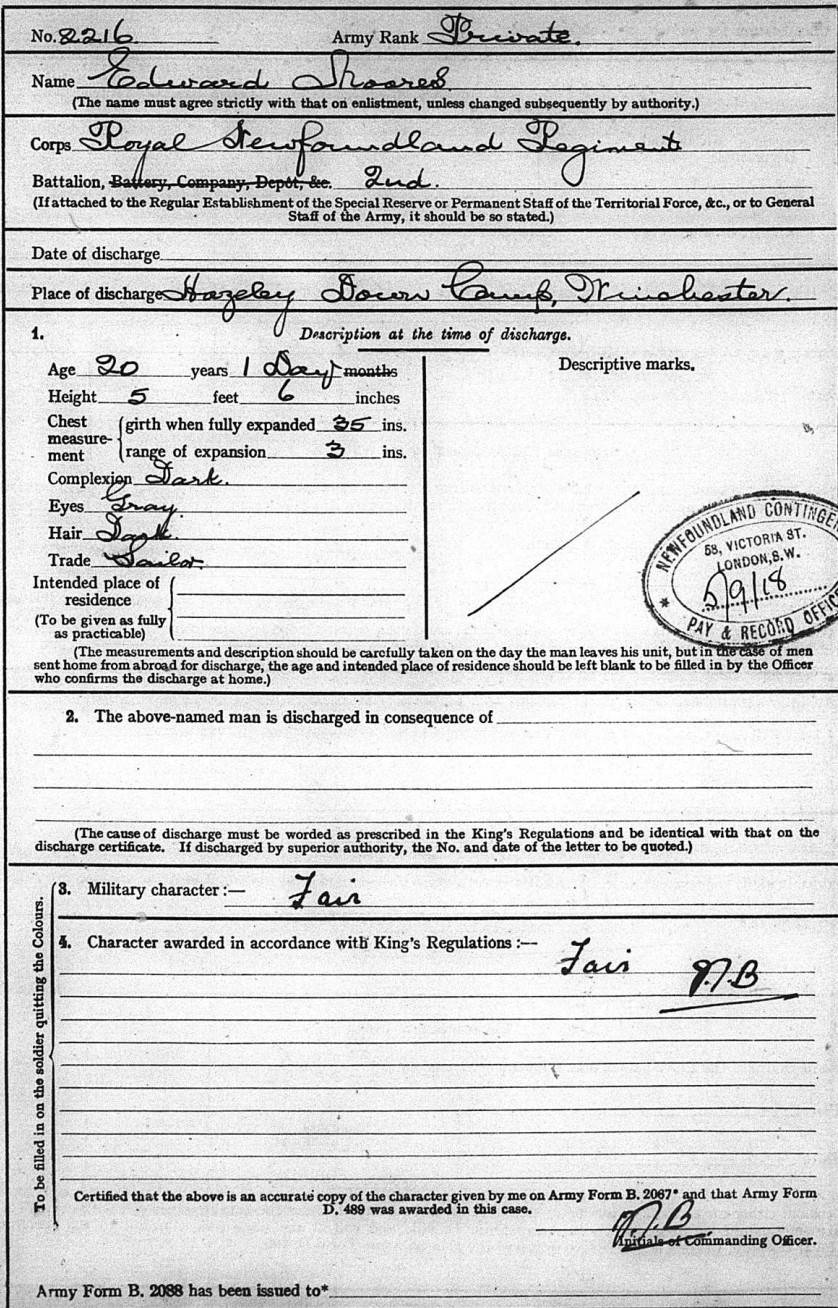 No. 2216 Army Rank Private.
Name Edward Shoares
(The name must agree strictly with that on enlistment, unless changed subsequently by authority.)
Corps Royal Newfoundland Regiment
Battalion, Battery, Company, Depôt, &c. 2nd.
(If attached to the Regular Establishment of the Special Reserve or Permanent Staff of the Territorial Force, &c., or to General
Staff of the Army, it should be so stated.)
Date of discharge
Place of discharge Hazeley Down Camp, Winchester.
1. Description at the time of discharge.
Age 20 years 1 Day months
Height 5 feet 6 inches
Chest measure-ment girth when fully expanded 35 ins.
range of expansion 3 ins.
Complexion Dark.
Eyes Gray.
Hair Dark.
Trade Sailor
Intended place of
residence
(To be given as fully
as practicable)
Descriptive marks.
NEWFOUNDLAND CONTINGEN
58, VICTORIA ST.
LONDON, S.W.
5/9/18
* PAY & RECORD OFFICE
(The measurements and description should be carefully taken on the day the man leaves his unit, but in the case of men
sent home from abroad for discharge, the age and intended place of residence should be left blank to be filled in by the Officer
who confirms the discharge at home.)
2. The above-named man is discharged in consequence of
(The cause of discharge must be worded as prescribed in the King's Regulations and be identical with that on the
discharge certificate. If discharged by superior authority, the No. and date of the letter to be quoted.)
To be filled in on the soldier quitting the Colours.
3. Military character :— Fair
4. Character awarded in accordance with King's Regulations :—
Fair
Certified that the above is an accurate copy of the character given by me on Army Form B. 2067* and that Army Form
D. 489 was awarded in this case.
Initials of Commanding Officer.
Army Form B. 2088 has been issued to*